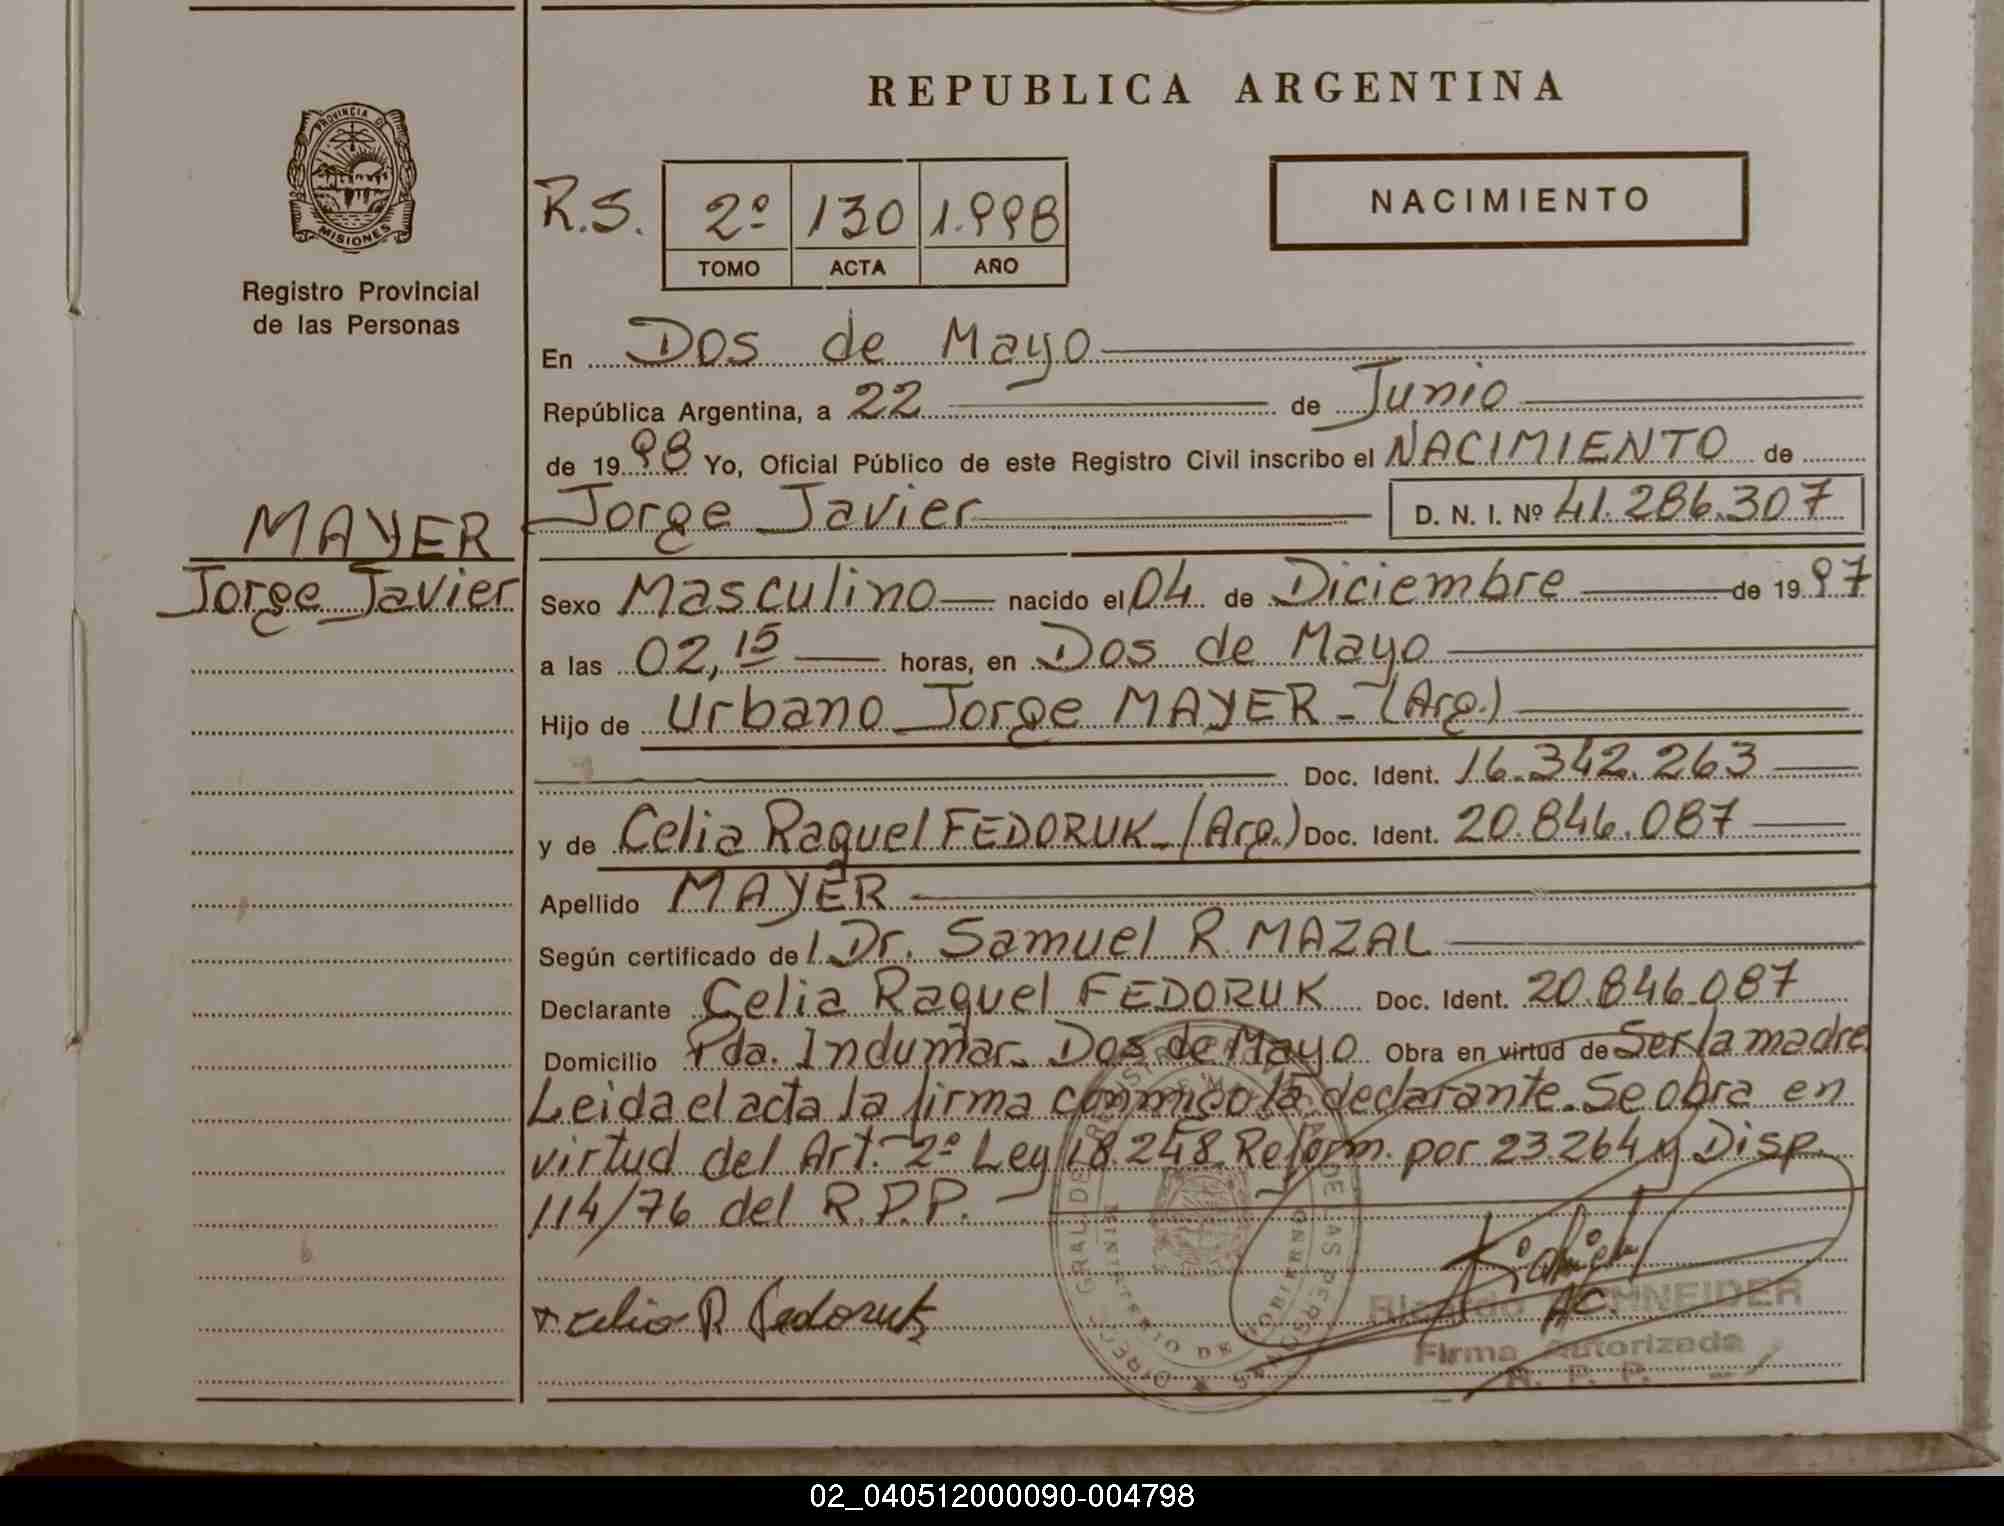 REPUBLICA ARGENTINA
PROVINCIA DE
MISIONES
Registro Provincial
de las Personas
R.S. 2º 130 1.998
TOMO ACTA AÑO
NACIMIENTO
En Dos de Mayo
República Argentina, a 22 de Junio
de 1998 Yo, Oficial Público de este Registro Civil inscribo el NACIMIENTO de
Jorge Javier D. N. I. Nº 41.286.307
MAYER
Jorge Javier
Sexo Masculino nacido el 04 de Diciembre de 1997
a las 02,15 horas, en Dos de Mayo
Hijo de Urbano Jorge MAYER - (Arg.)
Doc. Ident. 16.342.263
y de Celia Raquel FEDORUK - (Arg.) Doc. Ident. 20.846.087
Apellido MAYER
Según certificado del Dr. Samuel R. MAZAL
Declarante Celia Raquel FEDORUK Doc. Ident. 20.846.087
Domicilio Pda. Indumar - Dos de Mayo Obra en virtud de Ser la madre
Leida el acta la firma conmigo la declarante. Se obra en
virtud del Art. 2º Ley 18.248 Reform. por 23.264 y Disp.
114/76 del R.P.P. -
Celia R Fedoruk
Ricardo SCHNEIDER
Firma Autorizada
R. P. P.
MINISTERIO DE GOBIERNO
02_040512000090-004798